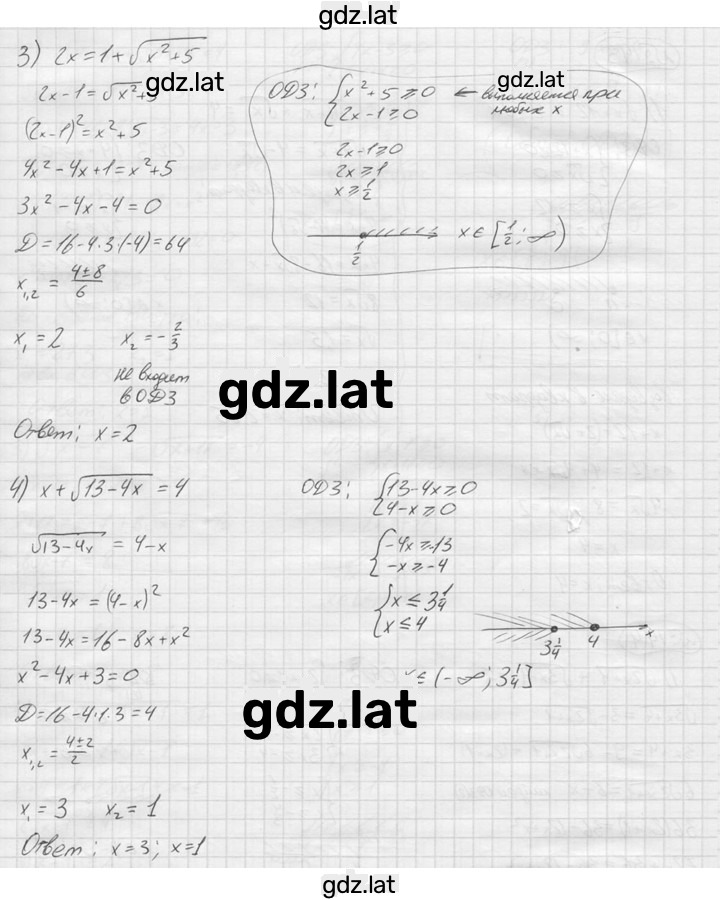 gdz.lat
3) 2x=1+√(x²+5)
2x-1=√(x²+5)
gdz.lat
(2x-1)²=x²+5
4x²-4x+1=x²+5
3x²-4x-4=0
D=16-4·3·(-4)=64
x₁,₂ = (4±8)/6
x₁=2 x₂=-2/3
не входит
в ОДЗ
Ответ: x=2
gdz.lat
ОДЗ: { x²+5≥0 ← выполняется при
любых x
2x-1≥0
2x-1≥0
2x≥1
x≥1/2
1/2
x∈[1/2; ∞)
gdz.lat
4) x+√(13-4x) = 4
√(13-4x) = 4-x
13-4x=(4-x)²
13-4x=16-8x+x²
x²-4x+3=0
D=16-4·1·3=4
x₁,₂ = (4±2)/2
x₁=3 x₂=1
Ответ: x=3; x=1
ОДЗ: { 13-4x≥0
4-x≥0
{ -4x≥-13
-x≥-4
{ x≤3 1/4
x≤4
3 1/4 4 x
x∈(-∞; 3 1/4]
gdz.lat
gdz.lat